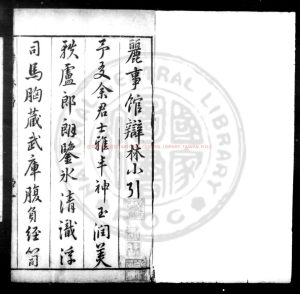 麗事館辯林小引
予友余君士雅丰神玉潤美
秩盧郎朗鑒冰清識浮
司馬胸藏武庫腹負經笥